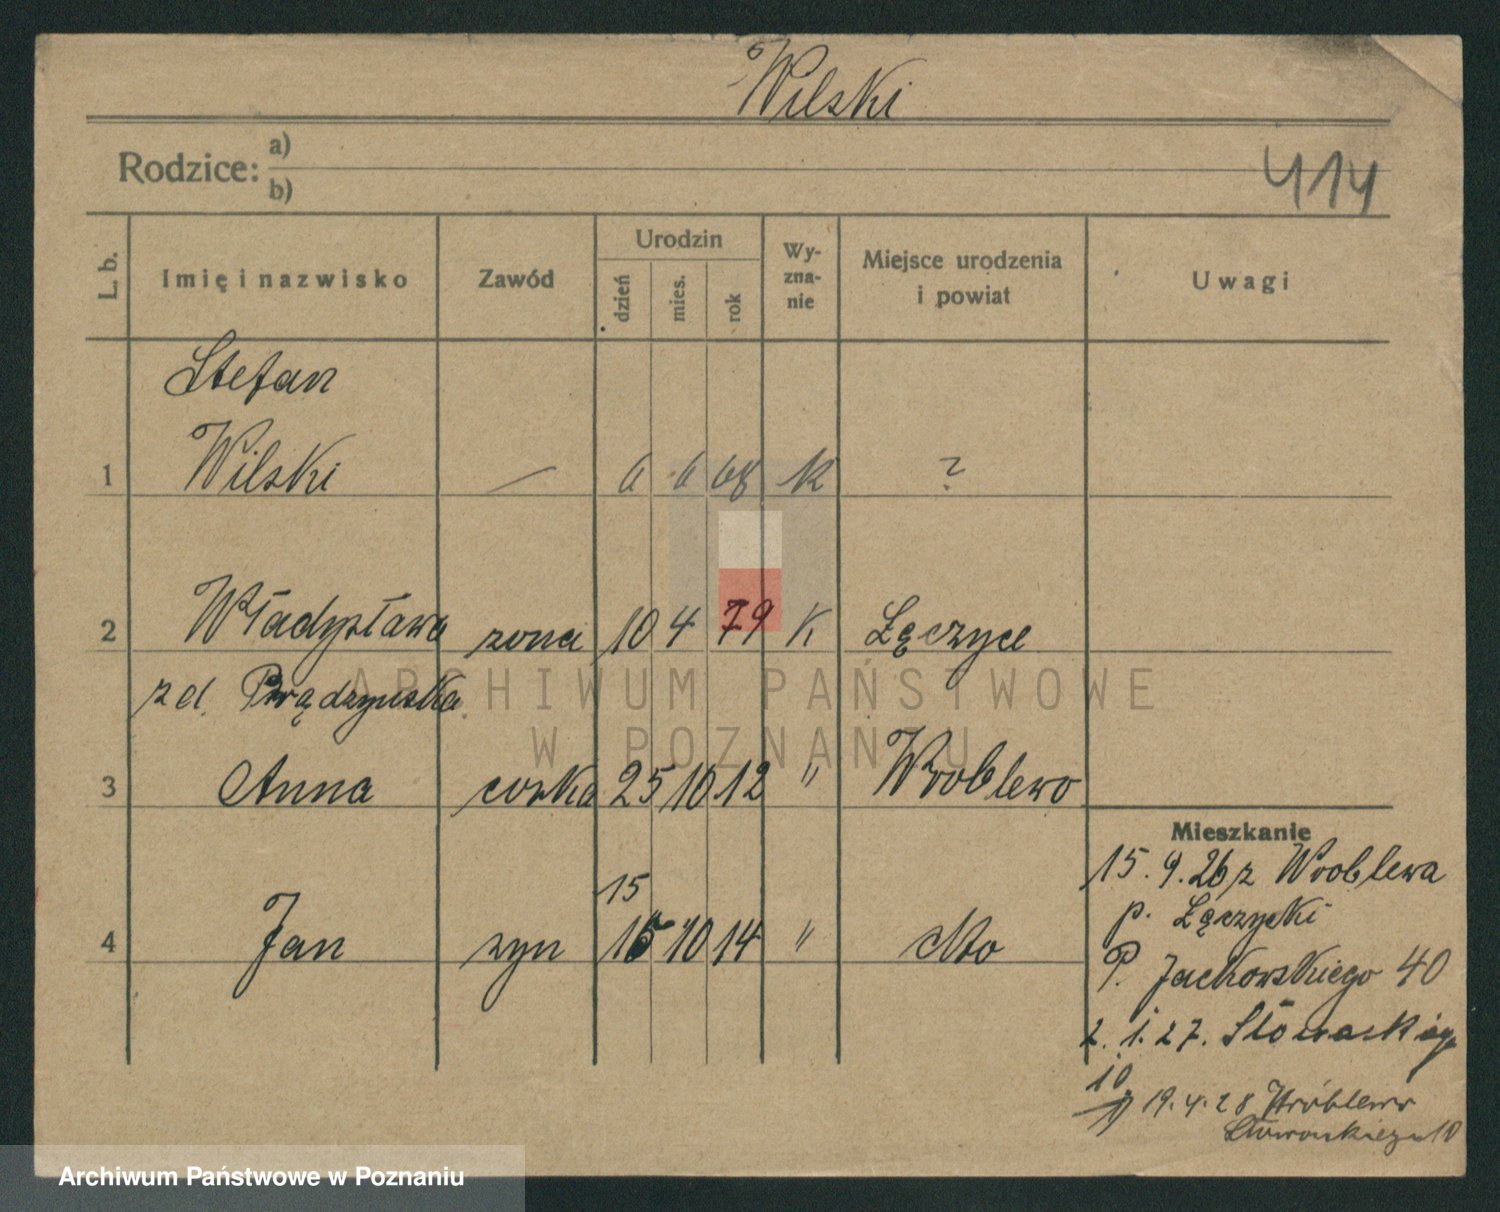 Wilski
Rodzice: a)
b)
414
L. b.
Imię i nazwisko
Zawód
Urodzin
dzień
mies.
rok
Wy-
zna-
nie
Miejsce urodzenia
i powiat
Uwagi
Stefan
1 Wilski — 68 K ?
2 Władysława zona 10 4 79 K Łęczyce
zd.
3 Anna corka 25 10 12 " Wroblewo
15
4 Jan syn 15 10 14 "
Mieszkanie
15. 9. 26 z Wroblewa
p. Łęczycki
P. Jackowskiego 40
2. 1. 27. Słowackiego
10
19. 4. 28 Wróblewo
Słowackiego 10
ARCHIWUM PAŃSTWOWE
W POZNANIU
Archiwum Państwowe w Poznaniu